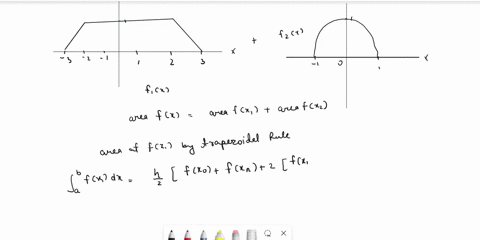 + f₂(x)
-3 -2 -1 1 2 3 x
-1 0 1 x
f₁(x)
area f(x) = area f(x₁) + area f(x₂)
area of f(x₁) by trapezoidal Rule
∫ₐᵇ f(x₁) dx = h/2 [ f(x₀) + f(xₙ) + 2 [ f(x₁